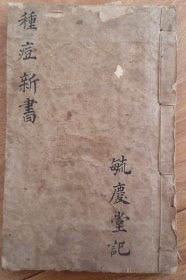 種痘新書
毓慶堂記